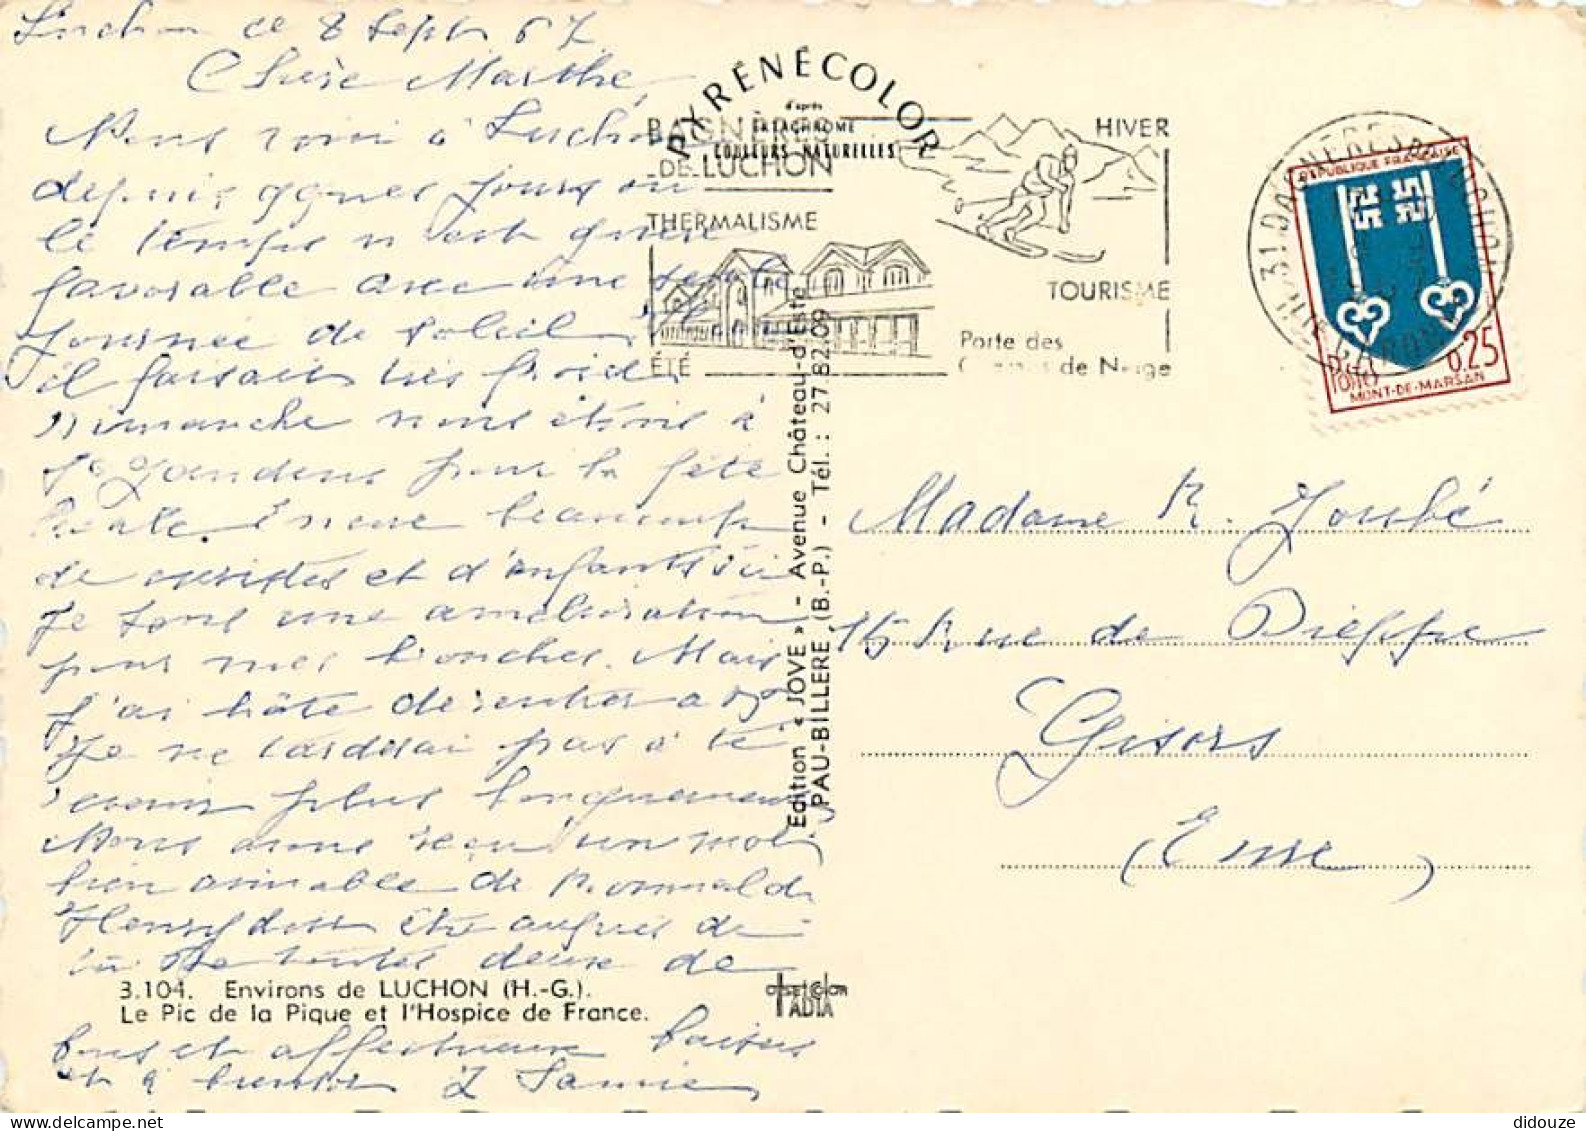 Luchon ce 8 Sept 67
Chère Marthe
Nous voici à Luchon
depuis qques jours ou
le temps n'est guère
favorable avec une seule
journée de soleil,
il faisait très froid
Dimanche nous étions à
St Gaudens pour la fête
locale. Encore beaucoup
de curistes et d'enfants ici
Je fais une amélioration
pour mes bronches. Mais
j'ai hâte de rentrer
Je ne tarderai pas à t'é
crire plus longuement
Nous avons reçu un mot
bien aimable de Romuald
Henry doit être auprès de
toi de toutes deux de
bons et affectueux baisers
et à bientôt J Fannie
PYRÉNÉCOLOR
d'après
EKTACHROME
COULEURS NATURELLES
BAGNÈRES
DE LUCHON
THERMALISME
ÉTÉ
HIVER
TOURISME
Porte des
de Neige
31 BAGNERES DE LUCHON
HTE GARONNE
REPUBLIQUE FRANÇAISE
POSTES
0,25
MONT-DE-MARSAN
Edition « JOVE » - Avenue Château-d'Este
PAU-BILLERE (B.-P.) - Tél. : 27.82.09
Madame R. Joubé
15 Rue de Dieppe
Gisors
(Eure)
3.104. Environs de LUCHON (H.-G.).
Le Pic de la Pique et l'Hospice de France.
didouze